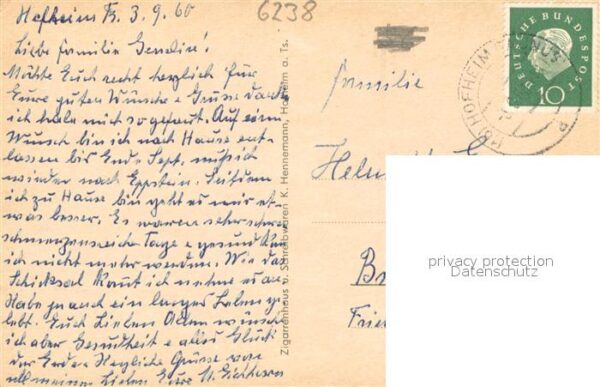 Hofheim Ts. 3.9.60
6238
Liebe Familie
Möchte Euch recht herzlich für
Eure guten Wünsche u Grüsse danken
ich habe mich so gefreut. Auf eine
Wunsch bin ich nach Hause ent-
lassen bis Ende Sept. muss ich
wieder nach Eppstein. Seitdem
ich zu Hause bin geht es mir et-
was besser. Es waren sehr schwere
schmerzensreiche Tage u gesund kann
ich nicht mehr werden. Wie das
Schicksal kommt ich nehme es an
Habe ja auch ein langes Leben ge
lebt. Euch Lieben Allen wünsche
ich aber Gesundheit u alles Glück
der Erde. Herzliche Grüsse von
all meinen Lieben Eure M.
Zigarrenhaus u. Schreibwaren K. Hennemann, Hofheim a. Ts.
DEUTSCHE BUNDESPOST
10
HOFHEIM (TAUNUS)
Familie
privacy protection
Datenschutz